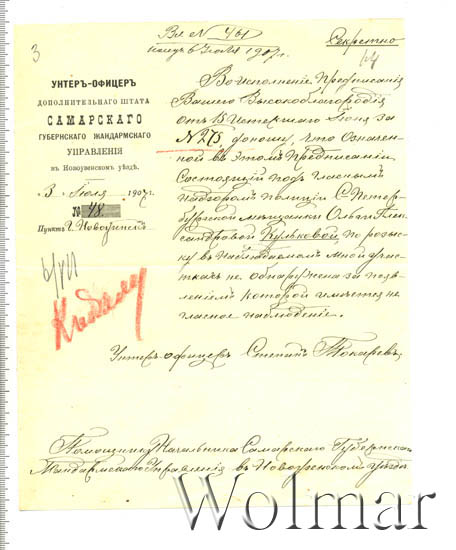 3
Вх № 461
Секретно
получ. 6 июля 1907 г.
14
УНТЕРЪ-ОФИЦЕРЪ
ДОПОЛНИТЕЛЬНАГО ШТАТА
САМАРСКАГО
ГУБЕРНСКАГО ЖАНДАРМСКАГО
УПРАВЛЕНІЯ
въ Новоузенскомъ уѣздѣ.
3 Іюля 1907 г.
№ 48
Пунктъ г. Новоузенскъ
6/VII
Во исполненіе Предписанія
Вашего Высокоблагородія
отъ 15 истекшаго Іюня за
№ 275, доношу, что означен
ной въ этомъ Предписаніи
состоящей подъ гласнымъ
надзоромъ полиціи С-Петер
бургской мѣщанки Ольги Алек
сандровой Кульковой, по розыс
ку въ наблюдаемомъ мной учас
ткахъ не обнаружена за появ
леніемъ которой имѣется не
гласное наблюденіе.
Унтеръ-офицеръ Степанъ Токаревъ
Помощнику Начальника Самарскаго Губернскаго
Жандармскаго Управленія въ Новоузенскомъ уѣздѣ
Wolmar